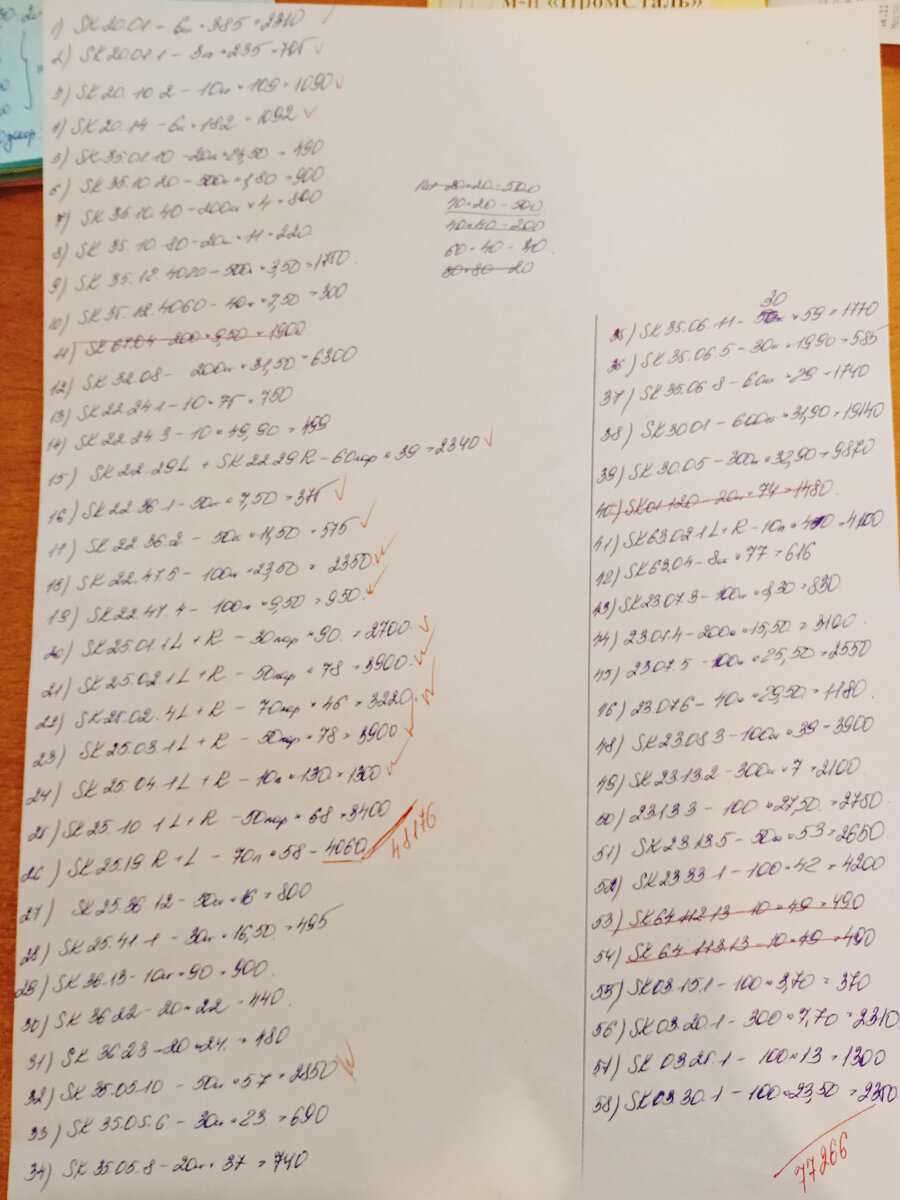 м-н «ПромСталь»
1) SK 20.01 - 6ш × 385 = 2310
2) SK 20.01.1 - 3ш × 235 = 705
3) SK 20.10.2 - 10ш × 109 = 1090
4) SK 20.14 - 6ш × 182 = 1092
5) SK 35.01.10 - 20ш × 24,50 = 490
6) SK 35.10.20 - 500ш × 1,80 = 900
7) SK 35.10.40 - 200ш × 4 = 800
8) SK 35.10.80 - 20ш × 11 = 220
9) SK 35.12.4020 - 500ш × 3,50 = 1750
10) SK 35.12.4060 - 40ш × 7,50 = 300
11) SK 67.04 - 200 × 9,50 = 1900
12) SK 32.08 - 200ш × 31,50 = 6300
13) SK 22.24.1 - 10 × 75 = 750
14) SK 22.24.3 - 10 × 49,90 = 499
15) SK 22.29 L + SK 22.29 R - 60пар × 39 = 2340
16) SK 22.36.1 - 50ш × 7,50 = 375
17) SK 22.36.2 - 50ш × 11,50 = 575
18) SK 22.47.5 - 100ш × 23,50 = 2350
19) SK 22.47.4 - 100ш × 9,50 = 950
20) SK 25.01.1 L + R - 30пар × 90 = 2700
21) SK 25.02.1 L + R - 50пар × 78 = 3900
22) SK 25.02.4 L + R - 70пар × 46 = 3220
23) SK 25.03.1 L + R - 50пар × 78 = 3900
24) SK 25.04.1 L + R - 10п × 130 = 1300
25) SK 25.10.1 L + R - 50пар × 68 = 3400
26) SK 25.19 R + L - 70п × 58 - 4060
48176
27) SK 25.36.12 - 50ш × 16 = 800
28) SK 25.41.1 - 30ш × 16,50 = 495
29) SK 36.13 - 10ш × 90 = 900
30) SK 36.22 - 20 × 22 - 440
31) SK 36.23 - 20 × 24 = 480
32) SK 35.05.10 - 50ш × 57 = 2850
33) SK 35.05.6 - 30ш × 23 = 690
34) SK 35.05.8 - 20ш × 37 = 740
20×20 - 500
40×20 - 500
40×40 - 200
60×40 - 40
80×80 - 20
30
35) SK 35.06.11 - 50ш × 59 = 1770
36) SK 35.06.5 - 30ш × 19,90 = 585
37) SK 35.06.8 - 60ш × 29 = 1740
38) SK 30.01 - 600ш × 31,90 = 19140
39) SK 30.05 - 300ш × 32,90 = 9870
40) SK 01.120 - 20ш × 74 = 1480
41) SK 63.02.1 L + R - 10п × 410 = 4100
42) SK 63.04 - 8ш × 77 = 616
43) SK 23.07.3 - 100ш × 8,30 = 830
44) 23.07.4 - 200ш × 15,50 = 3100
45) 23.07.5 - 100ш × 25,50 = 2550
46) 23.07.6 - 40ш × 29,50 = 1180
48) SK 23.08.3 - 100ш × 39 - 3900
49) SK 23.13.2 - 300ш × 7 = 2100
50) 23.13.3 - 100 × 27,50 = 2750
51) SK 23.13.5 - 50ш × 53 = 2650
52) SK 23.33.1 - 100 × 42 = 4200
53) SK 64.112.13 - 10 × 49 = 490
54) SK 64.113.13 - 10 × 49 = 490
55) SK 03.15.1 - 100 × 3,70 = 370
56) SK 03.20.1 - 300 × 7,70 = 2310
57) SK 03.25.1 - 100 × 13 = 1300
58) SK 03.30.1 - 100 × 23,50 = 2350
77266